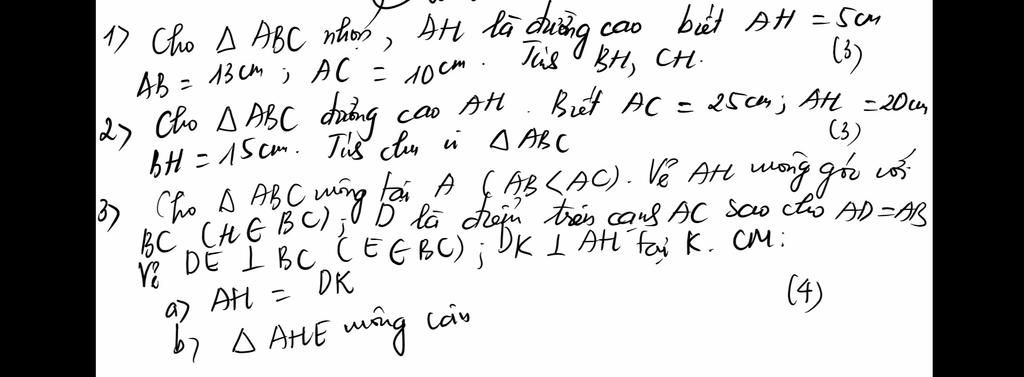 1) Cho Δ ABC nhọn, AH là đường cao biết AH = 5cm
AB = 13cm ; AC = 10cm. Tính BH, CH. (3)
2) Cho Δ ABC đường cao AH. Biết AC = 25cm; AH = 20cm
BH = 15cm. Tính chu vi Δ ABC (3)
3) Cho Δ ABC vuông tại A (AB < AC). Vẽ AH vuông góc với
BC (H ∈ BC); D là điểm trên cạnh AC sao cho AD = AB
Vẽ DE ⊥ BC (E ∈ BC); DK ⊥ AH tại K. CM:
a) AH = DK (4)
b) Δ AHE vuông cân